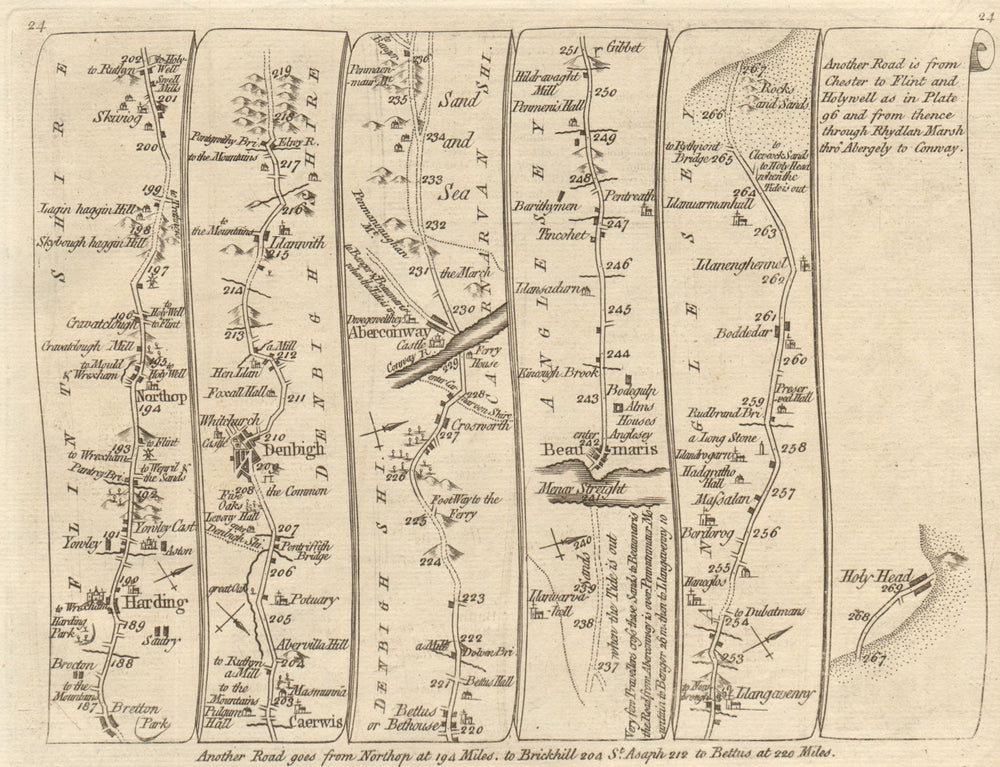 24
24
FLINTSHIRE
202
to Holy-
Well
to Ruthyn
Smell
Mills
201
Skiviog
200
199
Lagin haggin Hill
198
Skybough haggin Hill
197
196
to
Holy Well
to Flint
Cravatclough
Cravatclough Mill
195
to Mould
& Wrexham
to
Holy Well
Northop
194
193
to Flint
to Wrexham
to Wepril &
the Sands
Pantry Bri.
192
Yowley Cast.
191
Yowley
Aston
190
Harding
to Wrexham
Harding
Park
189
Sautry
188
Brocton
to the
Mountains
187
Bretton
Park
DENBIGHSHIRE
219
218
Pontgwithy Bri.
Elwy R.
to the Mountains
217
216
to
the Mountains
Llanvith
215
214
213
a Mill
212
Hen Llan
Foxall Hall
211
Whitchurch
Castle
210
Denbigh
209
208
Five
Oaks
the Common
Leweny Hall
207
Denbigh Sh.
Pontriffith
Bridge
206
great Oak
Potuary
205
Abervilla Hill
204
to Ruthyn
a Mill
to the
Mountains
Masmuria
203
Pulgum
Hall
Caerwis
DENBIGH SHI.
CARNARVAN SHI.
to
Bangor
236
Penmaen-
maur Mt.
235
Sand
234
and
233
Sea
232
Penmanvaughan
Mt.
231
the March
to Bangor & Beaumaris
when the Tide is in
230
Dwegewillhey
Abercoinway
Castle
Conway R.
229
Ferry
House
Carnarvon Shire
228
Crosworth
227
226
Foot Way to the
Ferry
225
224
223
222
a Mill
Dolwen Bri.
221
Bettus Hall
Bettus
or Bethouse
220
ANGLESEY
251
Gibbet
Hildravaght
Mill
250
Penmeni's Hall
249
248
Pentreath
Barithymen
247
Tincohet
246
Llansadurn
245
244
Kincough Brook
243
Bodegulp
Alms
Houses
enter
Anglesey
242
Beaumaris
Menai Streight
241
240
Sands
239
Llanwarva-
238
when the Tide is out
237
Very few Travellers cross these Sands to Beaumaris
the Road from Aberconway is over Penmanmaur Mo-
untain to Bangor 26 m. then to Llangavenny 10
ANGLESEY
267
Rocks
and Sands
266
to
Clevock Sands
to Holy Head
when the
Tide is out
to Rethpont
Bridge
265
264
Llanuarmanhull
263
Llanenghennel
262
261
Boddedar
260
Preser
ved Hall
259
Rudbrand Bri
258
a Long Stone
Llandrogarn
Hadgratho
Hall
257
Massalan
256
Bordorog
255
Hanoglos
254
to Dulatmans
253
to New-
brough
Llangavenny
Another Road is from
Chester to Flint and
Holywell as in Plate
96 and from thence
through Rhydlan Marsh
thro' Abergely to Conway.
Holy Head
269
268
267
Another Road goes from Northop at 194 Miles. to Brickhill 204 St. Asaph 212 to Bettus at 220 Miles.